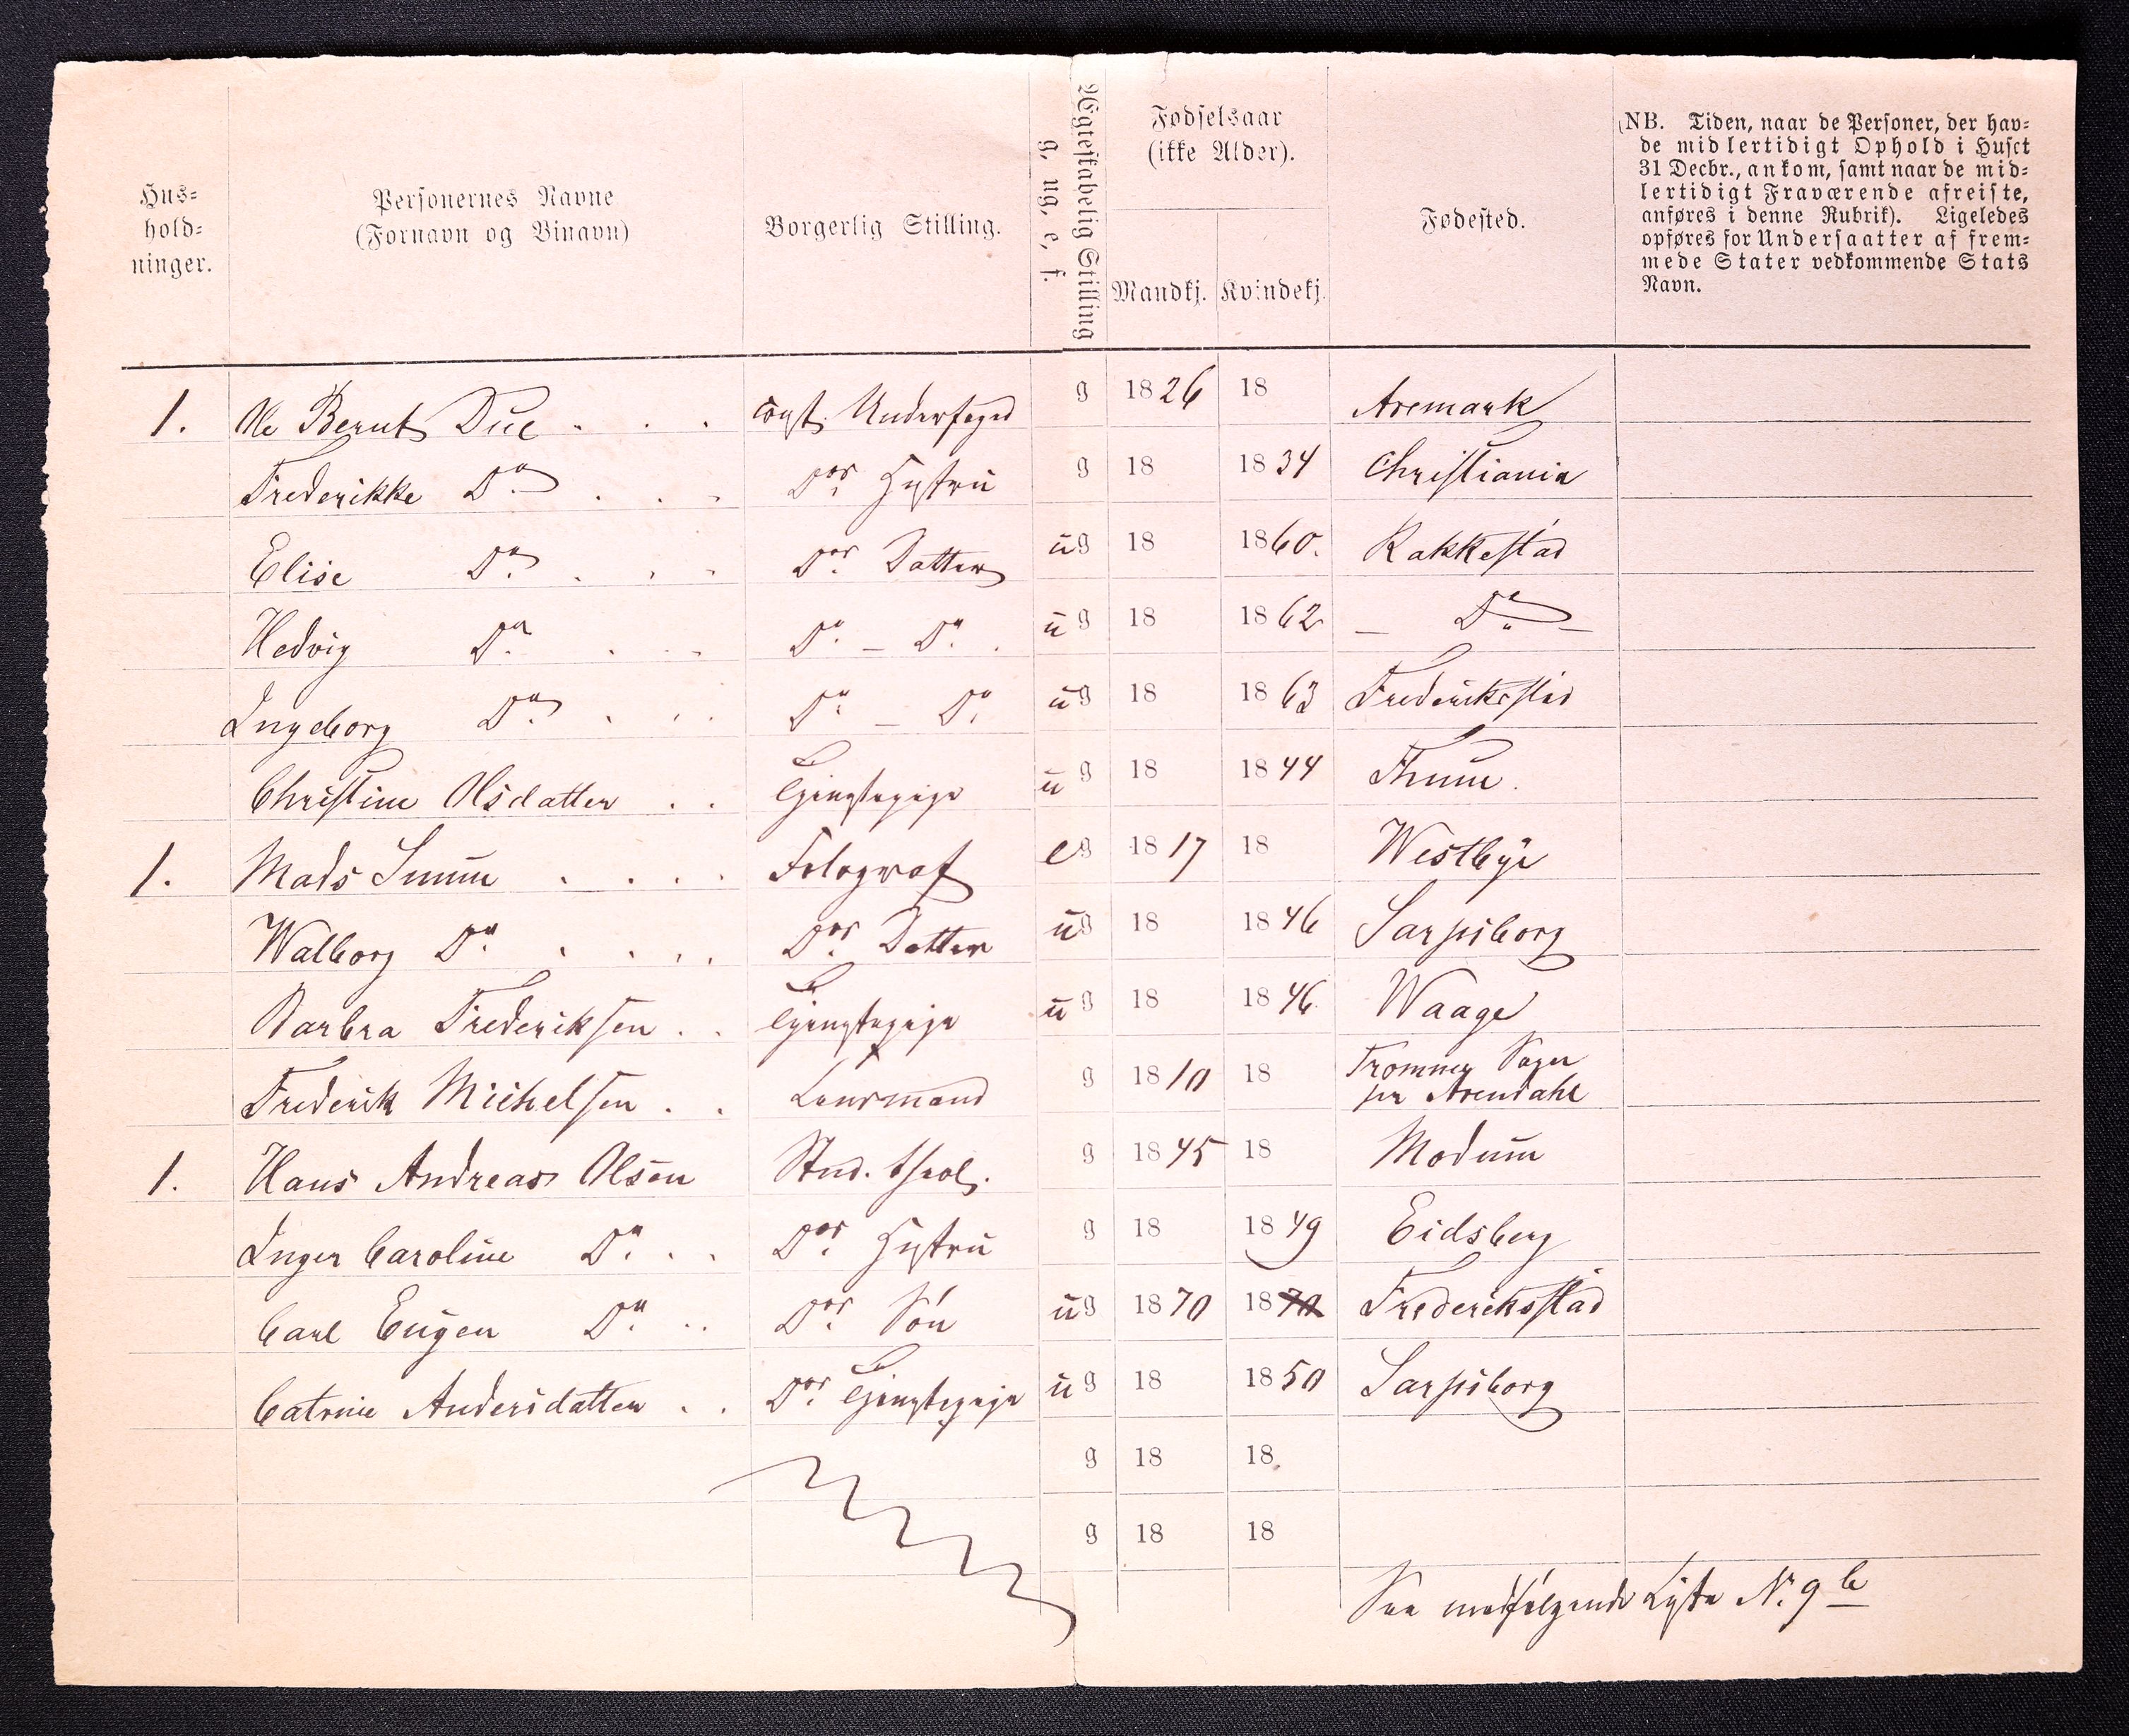 Hus-
hold-
ninger.
Personernes Navne
(Fornavn og Binavn)
Borgerlig Stilling.
Ægteskabelig Stilling
g, ug, e, f.
Fødselsaar
(ikke Alder).
Mandkj. Kvindekj.
Fødested.
(NB. Tiden, naar de Personer, der hav-
de midlertidigt Ophold i Huset
31 Decbr., ankom, samt naar de mid-
lertidigt Fraværende afreiste,
anføres i denne Rubrik). Ligeledes
opføres for Undersaatter af frem-
mede Stater vedkommende Stats
Navn.
1. Ole Bernt Due . . . const. Underfoged g 1826 18 Aremark
Frederikke Do . . . Dos Hustru g 18 1834 Christiania
Elise Do . . . Dos Datter ug 18 1860. Rakkestad
Hedvig Do . . . Do – Do . ug 18 1862 – Do –
Ingeborg Do . . . Do – Do ug 18 1863 Frederiksstad
Christine Olsdatter . . Tjenestepige ug 18 1844 Thune.
1. Mads . . . . Fotograf eg 1817 18 Westbye
Walborg Do . . . . Dos Datter ug 18 1846 Sarpsborg
Barbra Frederiksen . . Tjenestepige ug 18 1846 Waage
Frederik Michelsen . . Lensmand g 1810 18 Tromney Sogn
pr Arendahl
1. Hans Andreas Olsen Stud. theol. g 1845 18 Modum
Inger Caroline Do . . Dos Hustru g 18 1849 Eidsberg
Carl Eugen Do . . Dos Søn ug 1870 1870 Frederiksstad
Catrine Andersdatter . . Dos Tjenestepige ug 18 1850 Sarpsborg
g 18 18
g 18 18
See medfølgende Liste N. 9 b